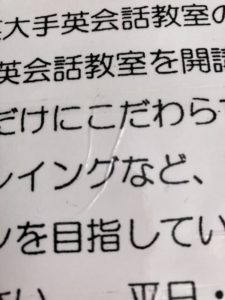 大手英会話教室の
英会話教室を開
だけにこだわら
イングなど、
を目指してい
平日・